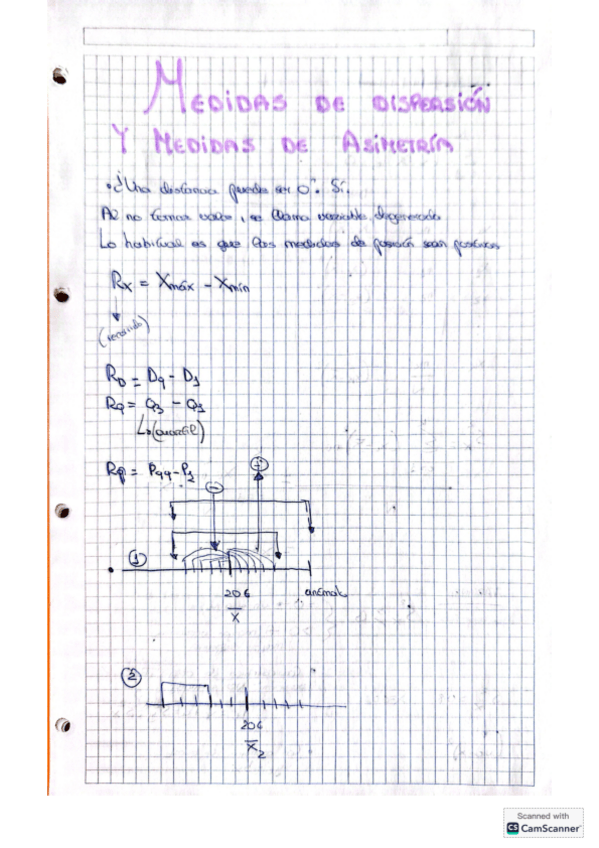 MEDIDAS DE DISPERSIÓN
Y MEDIDAS DE ASIMETRÍA
• ¿Una distancia puede ser 0? Sí.
Al no tomar valor, se llama variable degenerada
Lo habitual es que las medidas de posición sean positivas
Rx = Xmáx - Xmín
(recorrido)
RD = D9 - D1
RQ = Q3 - Q1
(cuartil)
RP = P99 - P1
-
+
1
20€
x̄
2
20€
x̄2
Scanned with
CS CamScanner